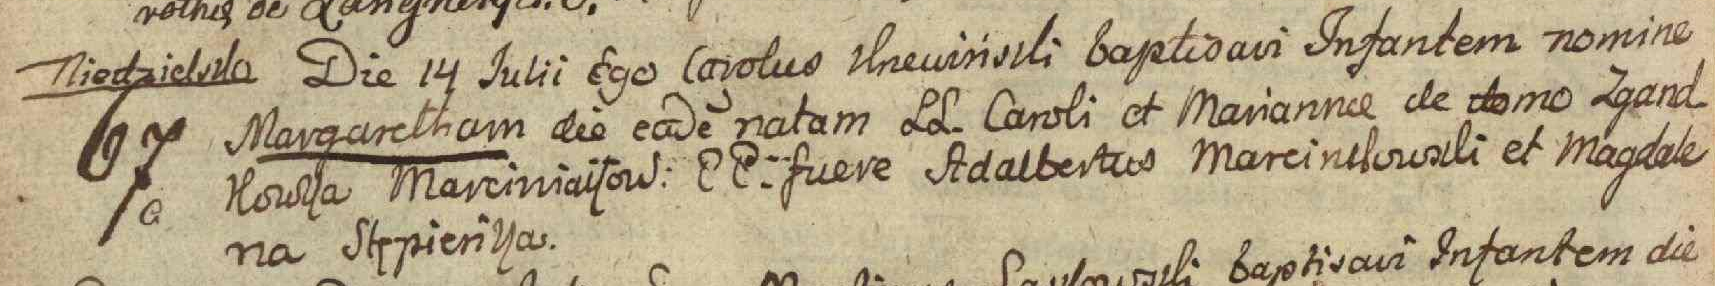 rothea de
Niedzielska Die 14 Julii Ego Carolus Knewiński baptisavi Infantem nomine
67 Margaretham die eadē natam LL. Caroli et Mariannæ de domo Zgand-
kowska Marciniaków: PP. fuere Adalbertus Marcinkowski et Magdale
na Stępieńka.
baptisavi Infantem die